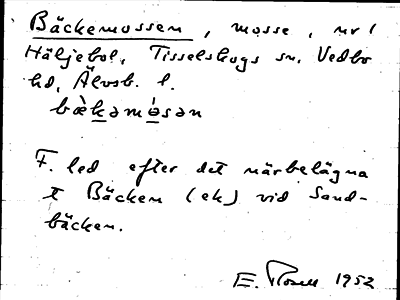 Bäckemossen, mosse, nr 1
Häljebol, Tisselskogs sn. Vedbo
hd, Älvsb. l.
bæ̀kamósan
F. led efter det närbelägna
t Bäcken (ek) vid Sand-
bäcken.
E. Rosell 1952